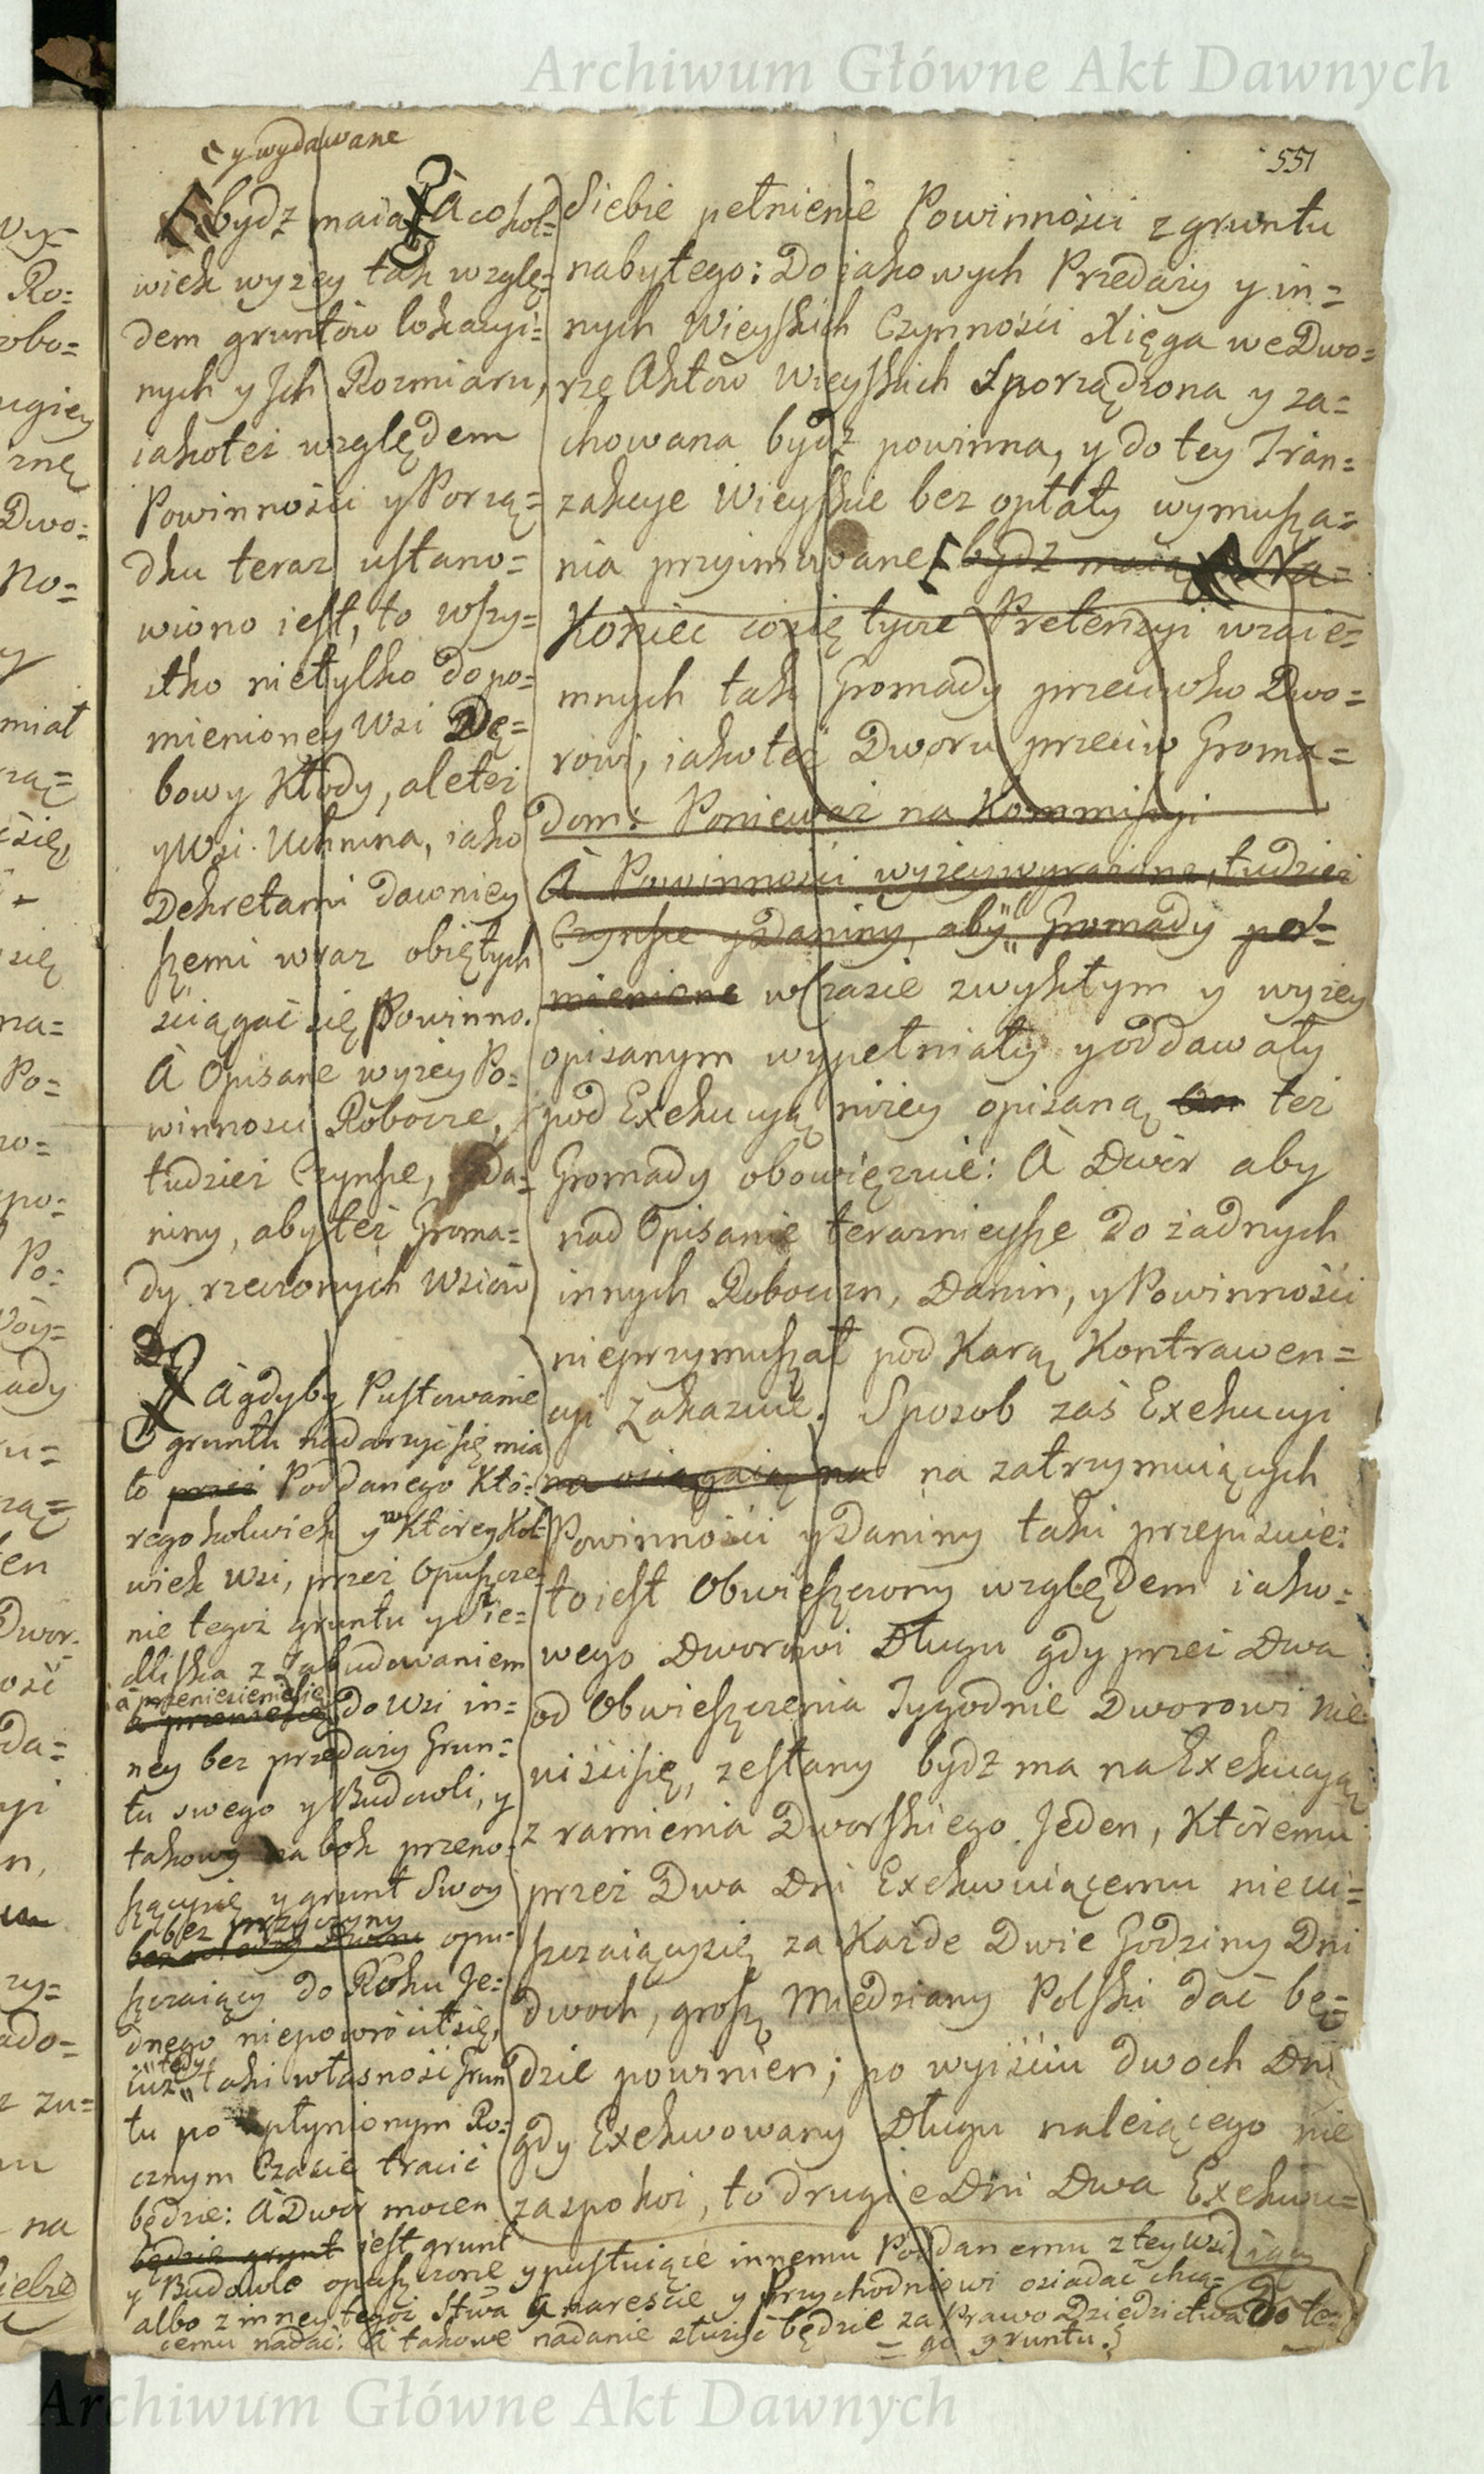 Archiwum Główne Akt Dawnych
551
y wydawane
bydz maią A cokol=
wiek wyzey tak wzglę=
dem gruntów lokacyi=
nych y Jch Rozmiaru,
iakoteż względem
Powinności y Porzą=
dku teraz ustano=
wiono iest, to wszy=
stko nietylko do po=
mienioney Wsi Dę=
bowy Kłody, ale też
y Wsi Uchnina, iako
Dekretami dawniey
szemi wraz obiętych
sciągać się Powinno.
A Opisane wyzey Po=
winnosci Robocze,
tudzież Czynsze, Da=
niny, aby też Groma=
dy rzeczonych Wsiów
A gdyby Pustowanie
gruntu nadarzyć się mia
ło przez Poddanego Któ=
regokolwiek y w Którey Kol=
wiek Wsi, przez Opuszcze=
nie tegoż gruntu y Sie=
dliska z Zabudowaniem
a przeniesienie się
do Wsi in=
ney bez przedaży Grun=
tu swego y Budowli, y
takowy na bok przeno=
szącysię y grunt Swoy
bez przyczyny
opu=
szczaiący do Roku Je=
dnego niepowróciłsię,
tedy
iuż taki własność Grun
tu po upłynionym Ro=
cznym Czasie tracić
będzie: A Dwór mocen
będzie grunt iest grunt
y Budowle opuszczone y pustuiące innemu Poddanemu z tey Wsi
albo z inney tegoż Stwa a nareście y Przychodniowi osiadać chcą=
cemu nadać: A takowe nadanie służyć będzie za Prawo Dziedzictwa do te=
= go gruntu.
Siebie pełnienie Powinności z gruntu
nabytego: Do iakowych Przedaży y in=
nych Wieyskich Czynności Xięga we Dwo=
rze Aktów Wieyskich Sporządzona y za=
chowana bydz powinna, y do tey Tran=
zakcye Wieyskie bez opłaty wymusza=
nia przyimowane bydz maią Na=
Koniec cosię tycze Pretensyi wzaie=
mnych tak Gromady przeciwko Dwo=
rowi, iako też Dworu przeciw Groma=
dom: Ponieważ na Kommissyi
A Powinności wyżey wyrażone, tudzież
Czynsze y Daniny, aby Gromady po=
mienione w Czasie zwykłym y wyżey
opisanym wypełniały y oddawały
pod Exekucyą niżey opisaną też
Gromady obowięzuie: A Dwór aby
nad Opisanie teraznieysze do żadnych
innych Roboczn, Danin, y Powinności
nieprzymuszał pod Karą Kontrawen=
cyi Zakazuie. Sposob zaś Exekucyi
na zatrzymuiących
Powinności y Daniny taki przepisuie:
to iest Obwieszczony względem iako=
wego Dworowi Długu gdy przez Dwa
od Obwieszczenia Tygodnie Dworowi nie
uiścisię, zesłany bydz ma na Exekucyą
z ramienia Dworskiego Jeden, Któremu
przez Dwa Dni Exekwuiącemu nieui=
szczaiącysię za Każde Dwie Godziny Dni
dwoch, grosz Miedziany Polski dać bę=
dzie powinien; po wyiściu dwoch Dni
gdy Exekwowany Długu należącego nie
zaspokoi, to drugie Dni Dwa Exekwu=
iący
Archiwum Główne Akt Dawnych